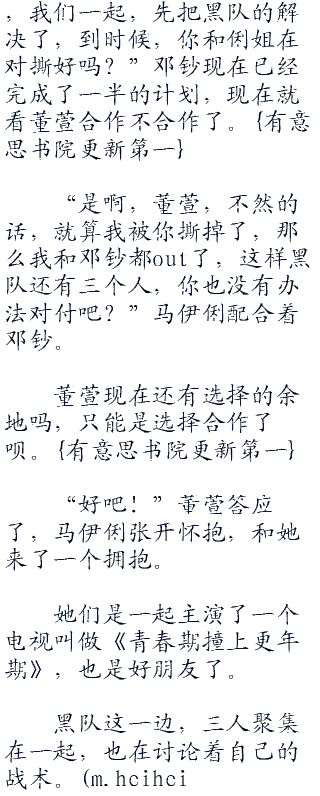 ，我们一起，先把黑队的解
决了，到时候，你和俐姐在
对撕好吗？”邓钞现在已经
完成了一半的计划，现在就
看董萱合作不合作了。{有意
思书院更新第一}
“是啊，董萱，不然的
话，就算我被你撕掉了，那
么我和邓钞都out了，这样黑
队还有三个人，你也没有办
法对付吧？”马伊俐配合着
邓钞。
董萱现在还有选择的余
地吗，只能是选择合作了
呗。{有意思书院更新第一}
“好吧！”董萱答应
了，马伊俐张开怀抱，和她
来了一个拥抱。
她们是一起主演了一个
电视叫做《青春期撞上更年
期》，也是好朋友了。
黑队这一边，三人聚集
在一起，也在讨论着自己的
战术。(m.hcihci